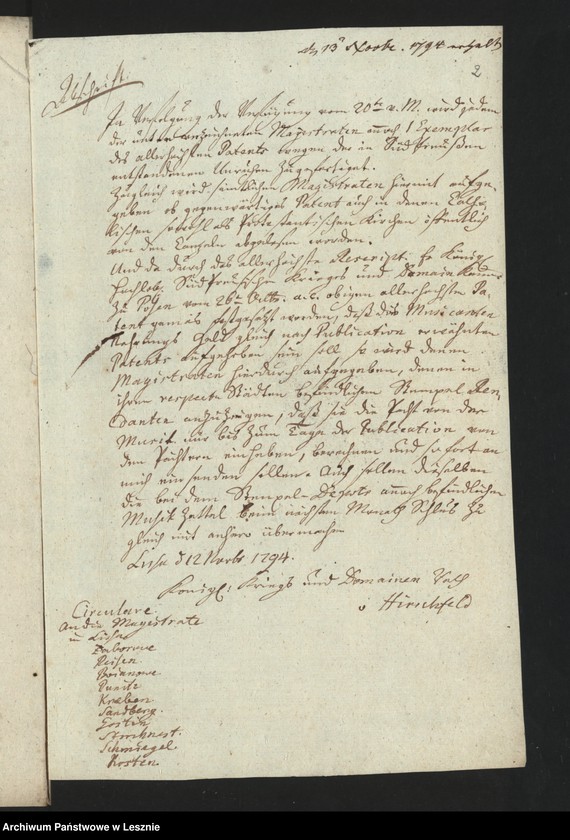 d. 13t Novbr. 1794 erhalt
2
Abschrift.
In Verfolgung der Verfügung vom 20ten v. M. wird jedem
der unten verzeichneten Magistraten annoch 1 Exemplar
des allerhöchsten Patents wegen der in Südpreußen
entstandenen Unruhen zugefertiget.
Zugleich wird sämtlichen Magistraten hiermit aufge-
geben ob gegenwärtiges Patent auch in denen Catho-
lischen sowohl als Protestantischen Kirchen öffentlich
von den Canzeln abgelesen worden.
Und da durch das allerhöchste Rescript Er. Königl.
Hochlob. Südpreußische Krieges und Domainen Cammer
zu Posen vom 26ten Octb. a. c. obigem allerhöchsten Pa-
tent gemäs festgesetzt worden, daß das Musicanten
Nahrungs Geld gleich nach Publication erwähnten
Patents aufgehoben sein soll so wird denen
Magistraten hierdurch aufgegeben, denen in
ihren respective Städten befindlichen Stempel Ren-
danten anzuzeigen, daß sie die Pacht von der
Music nur bis zum Tage der Publication von
den Pächtern einheben, berechnen und sofort an
mich einsenden sollen. Auch sollen dieselben
die bei dem Stempel-Debits annoch befindlichen
Musik Zettel beim nächsten Monats Schluß zu-
gleich mit anhero übermachen
Lissa d 12 Novbr 1794.
Königl: Kriegs und Domainen Rath
v Hirschfeld
Circulare
An die Magistrate
in Lissa
Zaborowe
Reisen
Bojanowe
Punitz
Kroeben
Sandberg.
Gostin
Storchnest.
Schmiegel.
Kosten.
Archiwum Państwowe w Lesznie